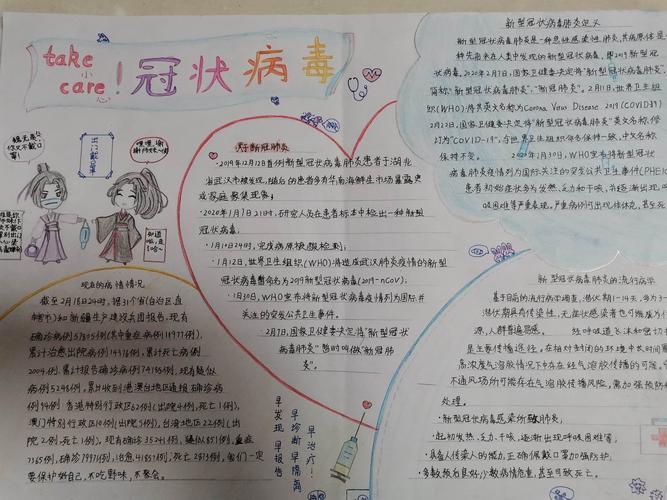 take
小
care!
心
冠状病毒
出门戴口罩
关于新冠肺炎
·2019年12月12日首例新型冠状病毒肺炎患者于湖北
省武汉市被发现,随后的患者多有华南海鲜庄市场暴露史
或家庭聚集现象;
·2020年1月7日21时,研究人员在患者标本中检出一种新型
冠状病毒.
·1月10日24时,完成病原核酸检测;
·1月12日,世界卫生组织(WHO)将造成武汉肺炎疫情的新型
冠状病毒暂命名为2019新型冠状病毒(2019-nCoV);
·1月30日,WHO宣布将新型冠状病毒疫情列为国际关
注的突发公共卫生事件.
·2月7日,国家卫健委决定将"新型冠状
病毒肺炎"暂时叫做"新冠肺
炎".
新型冠状病毒肺炎定义
新型冠状病毒肺炎是一种急性感染性肺炎,其病原体是一
种先前未在人类中发现的新型冠状病毒,即2019新型冠
状病毒.2020年2月7日,国家卫健委决定将"新型冠状病毒肺炎"
简称"新冠病毒肺炎","新冠肺炎".2月11日,世界卫生组
织(WHO)将其英文名称为Corona Virus Disease 2019(COVID19)
2月22日,国家卫健委决定将"新型冠状病毒肺炎"英文名称修
订为"COVID-19",与世界卫生组织保持一致,中文名称
保持不变. 2020年1月30日,WHO宣布将新型冠状
病毒肺炎疫情列为国际关注的突发公共卫生事件(PHEIC)
患者初始症状多为发热、乏力和干咳,并逐渐出现呼
吸困难等严重表现.
现在的病情情况
截至2月18日24时,据31个省(自治区、直
辖市)和新疆生产建设兵团报告,现有
确诊病例57805例(其中重症病例11977例),
累计治愈出院病例14376例,累计死亡病例
2004例,累计报告确诊病例74185例,现有疑似
病例5248例.累计收到港澳台地区通报确诊病
例94例:香港特别行政区62例(出院4例,死亡1例),
澳门特别行政区10例(出院5例),台湾地区22例(出
院2例,死亡1例).
要保护好自己,不吃野味,不聚会。
早发现 早报告
早诊断 早隔离
早治疗!
新型冠状病毒肺炎的流行病学
基于目前的流行病学调查,潜伏期1-14天,多为3-
潜伏期具有传染性,无症状感染者也可能成为传
染源,人群普遍易感. 经呼吸道飞沫和密切
是主要传播途径.在相对封闭的环境中长时间
高浓度气溶胶情况下存在经气溶胶传播的可能,
不通风场所可能存在气溶胶传播风险,需加强预防
处理.
·新型冠状病毒感染所致肺炎,
·起初发热、乏力、干咳,逐渐出现呼吸困难等;
·具备人传染人的能力,正确佩戴口罩加强防护;
·多数预后良好,少数病情危重,甚至可致死亡.